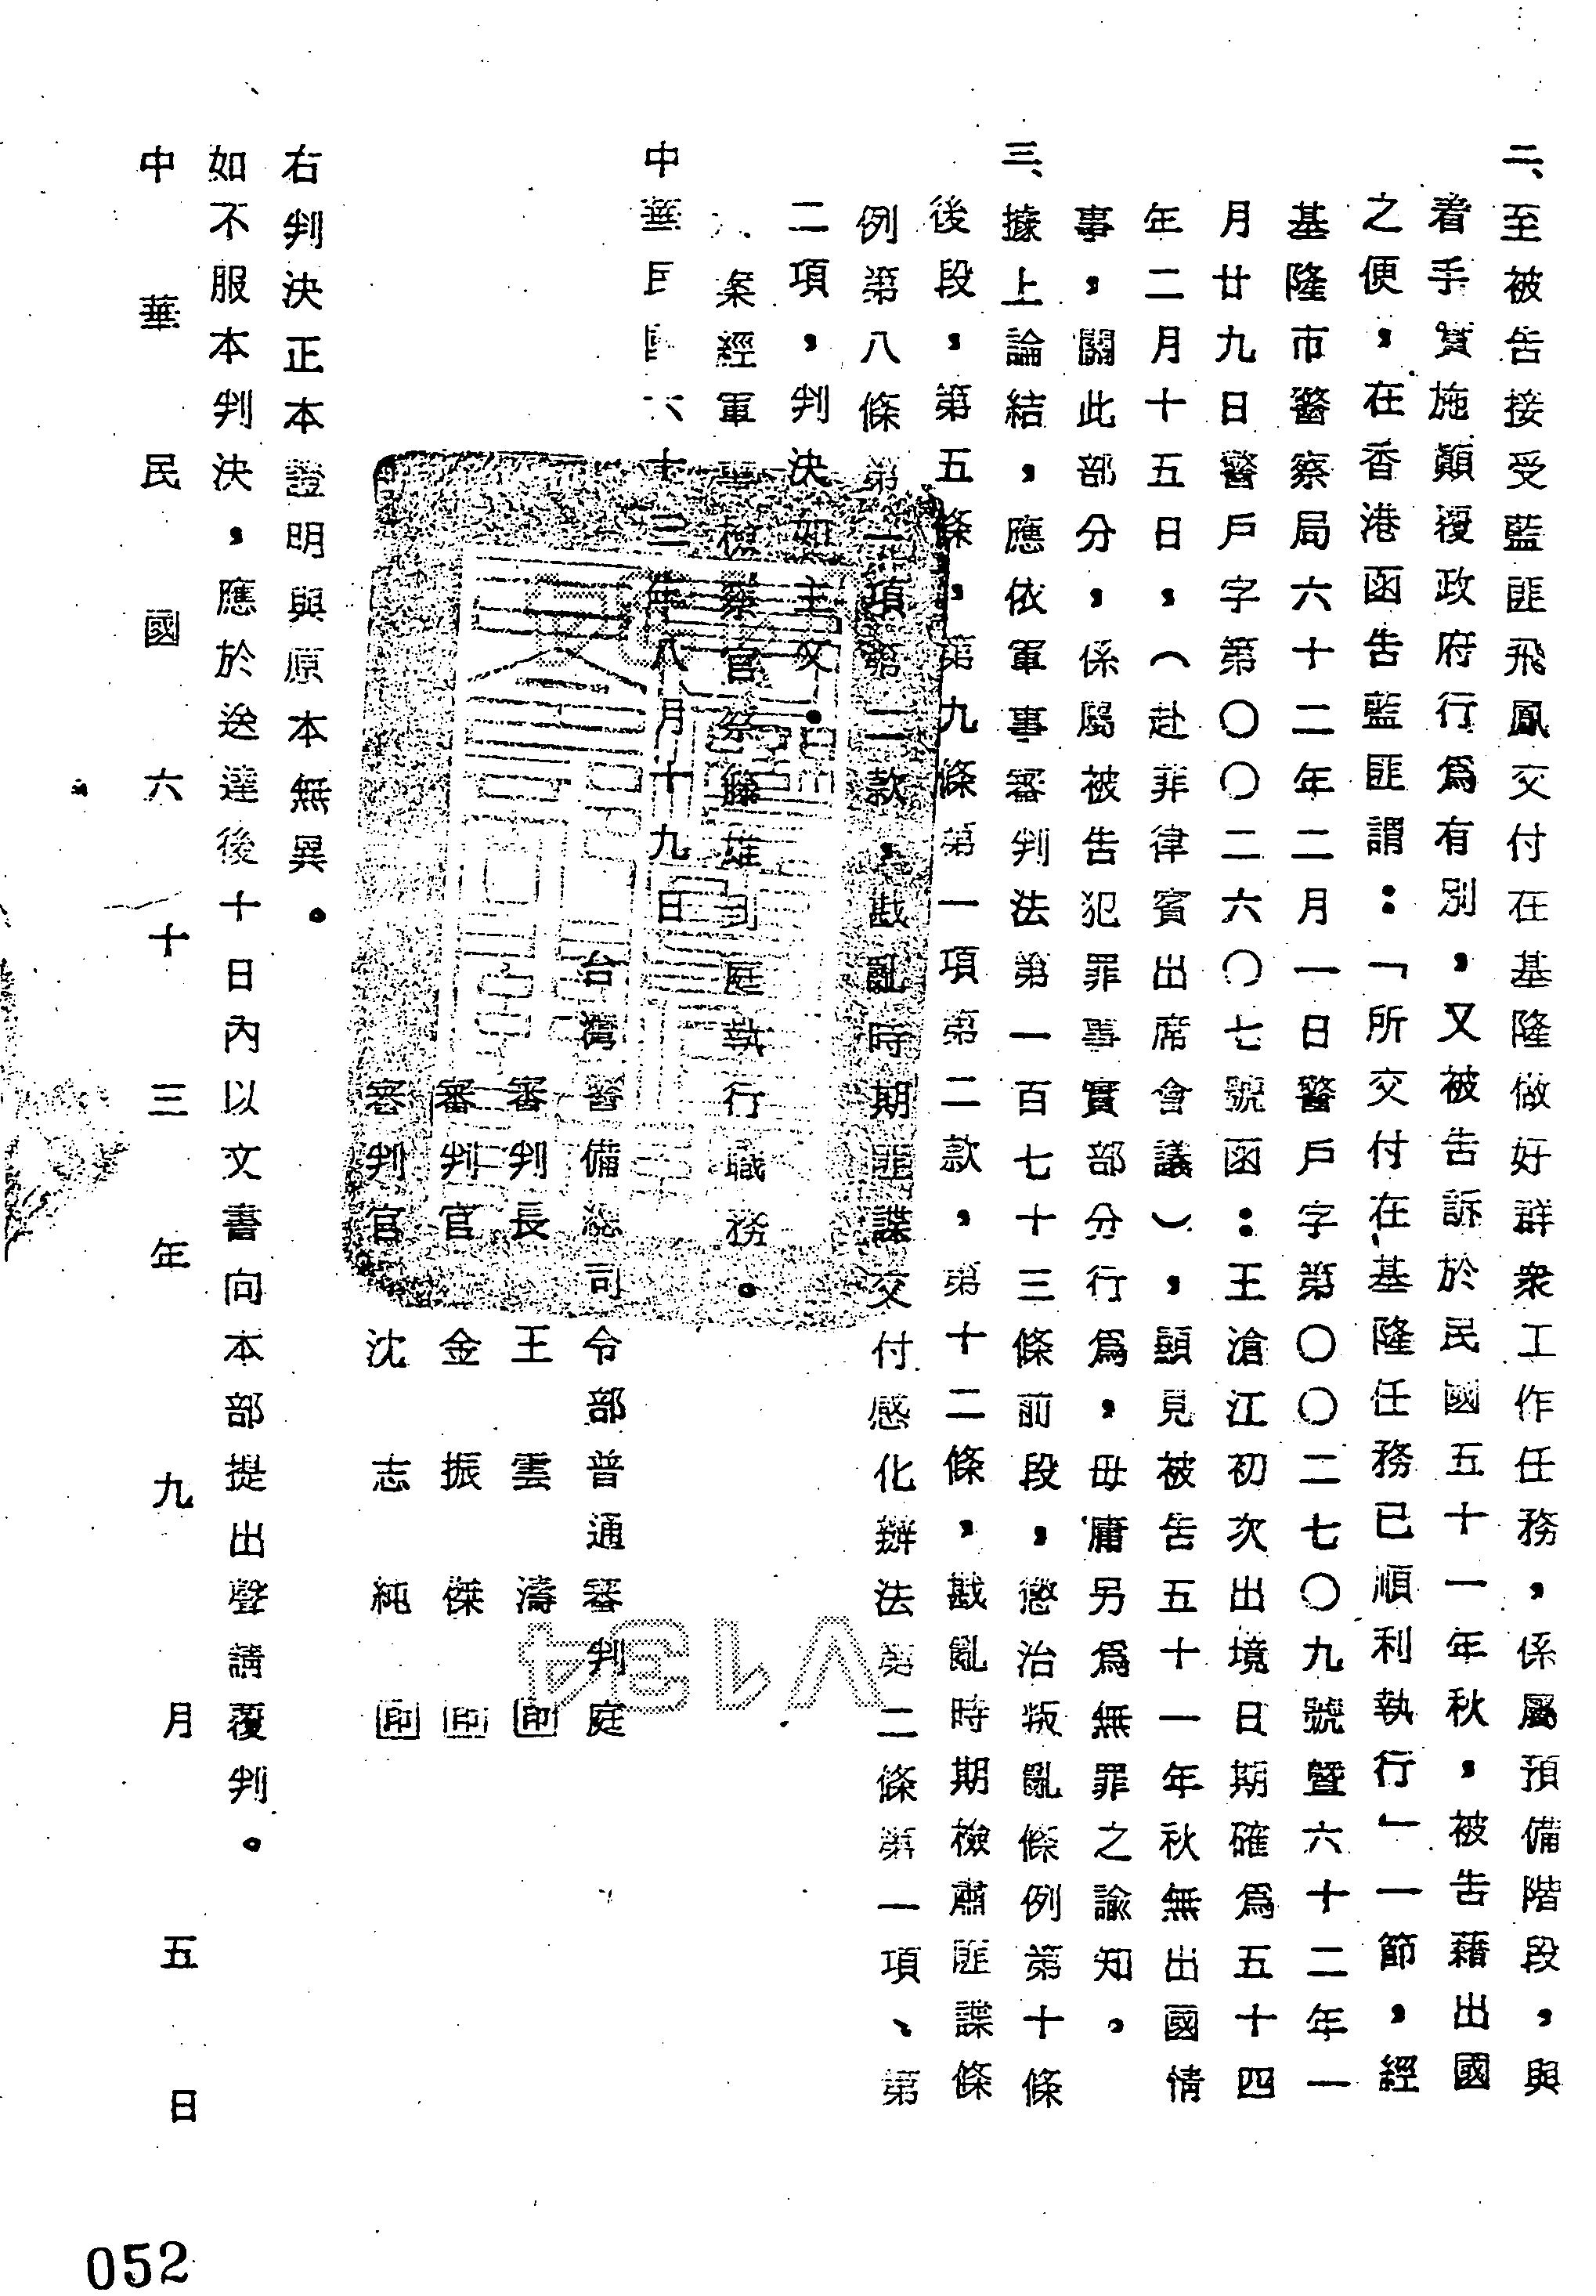 二、至被告接受藍匪飛鳳交付在基隆做好群衆工作任務，係屬預備階段，與
着手實施顚覆政府行爲有別，又被告訴於民國五十一年秋，被告藉出國
之便，在香港函告藍匪謂：「所交付在基隆任務已順利執行」一節，經
基隆市警察局六十二年二月一日警戶字第〇〇二七〇九號暨六十二年一
月廿九日警戶字第〇〇二六〇七號函：王滄江初次出境日期確爲五十四
年二月十五日，（赴菲律賓出席會議），顯見被告五十一年秋無出國情
事，關此部分，係屬被告犯罪事實部分行爲，毋庸另爲無罪之諭知。
三、據上論結，應依軍事審判法第一百七十三條前段，懲治叛亂條例第十條
後段，第五條，第九條第一項第二款，第十二條，戡亂時期檢肅匪諜條
例第八條第一項第二款，戡亂時期匪諜交付感化辦法第二條第一項、第
二項，判決如主文。
案經軍事檢察官蔡籐雄到庭執行職務。
中華民國六十三年八月十九日
台灣警備總司令部普通審判庭
審判長 王雲濤 印
審判官 金振傑 印
審判官 沈志純 印
右判決正本證明與原本無異。
如不服本判決，應於送達後十日內以文書向本部提出聲請覆判。
中華民國六十三年九月五日
V134
052